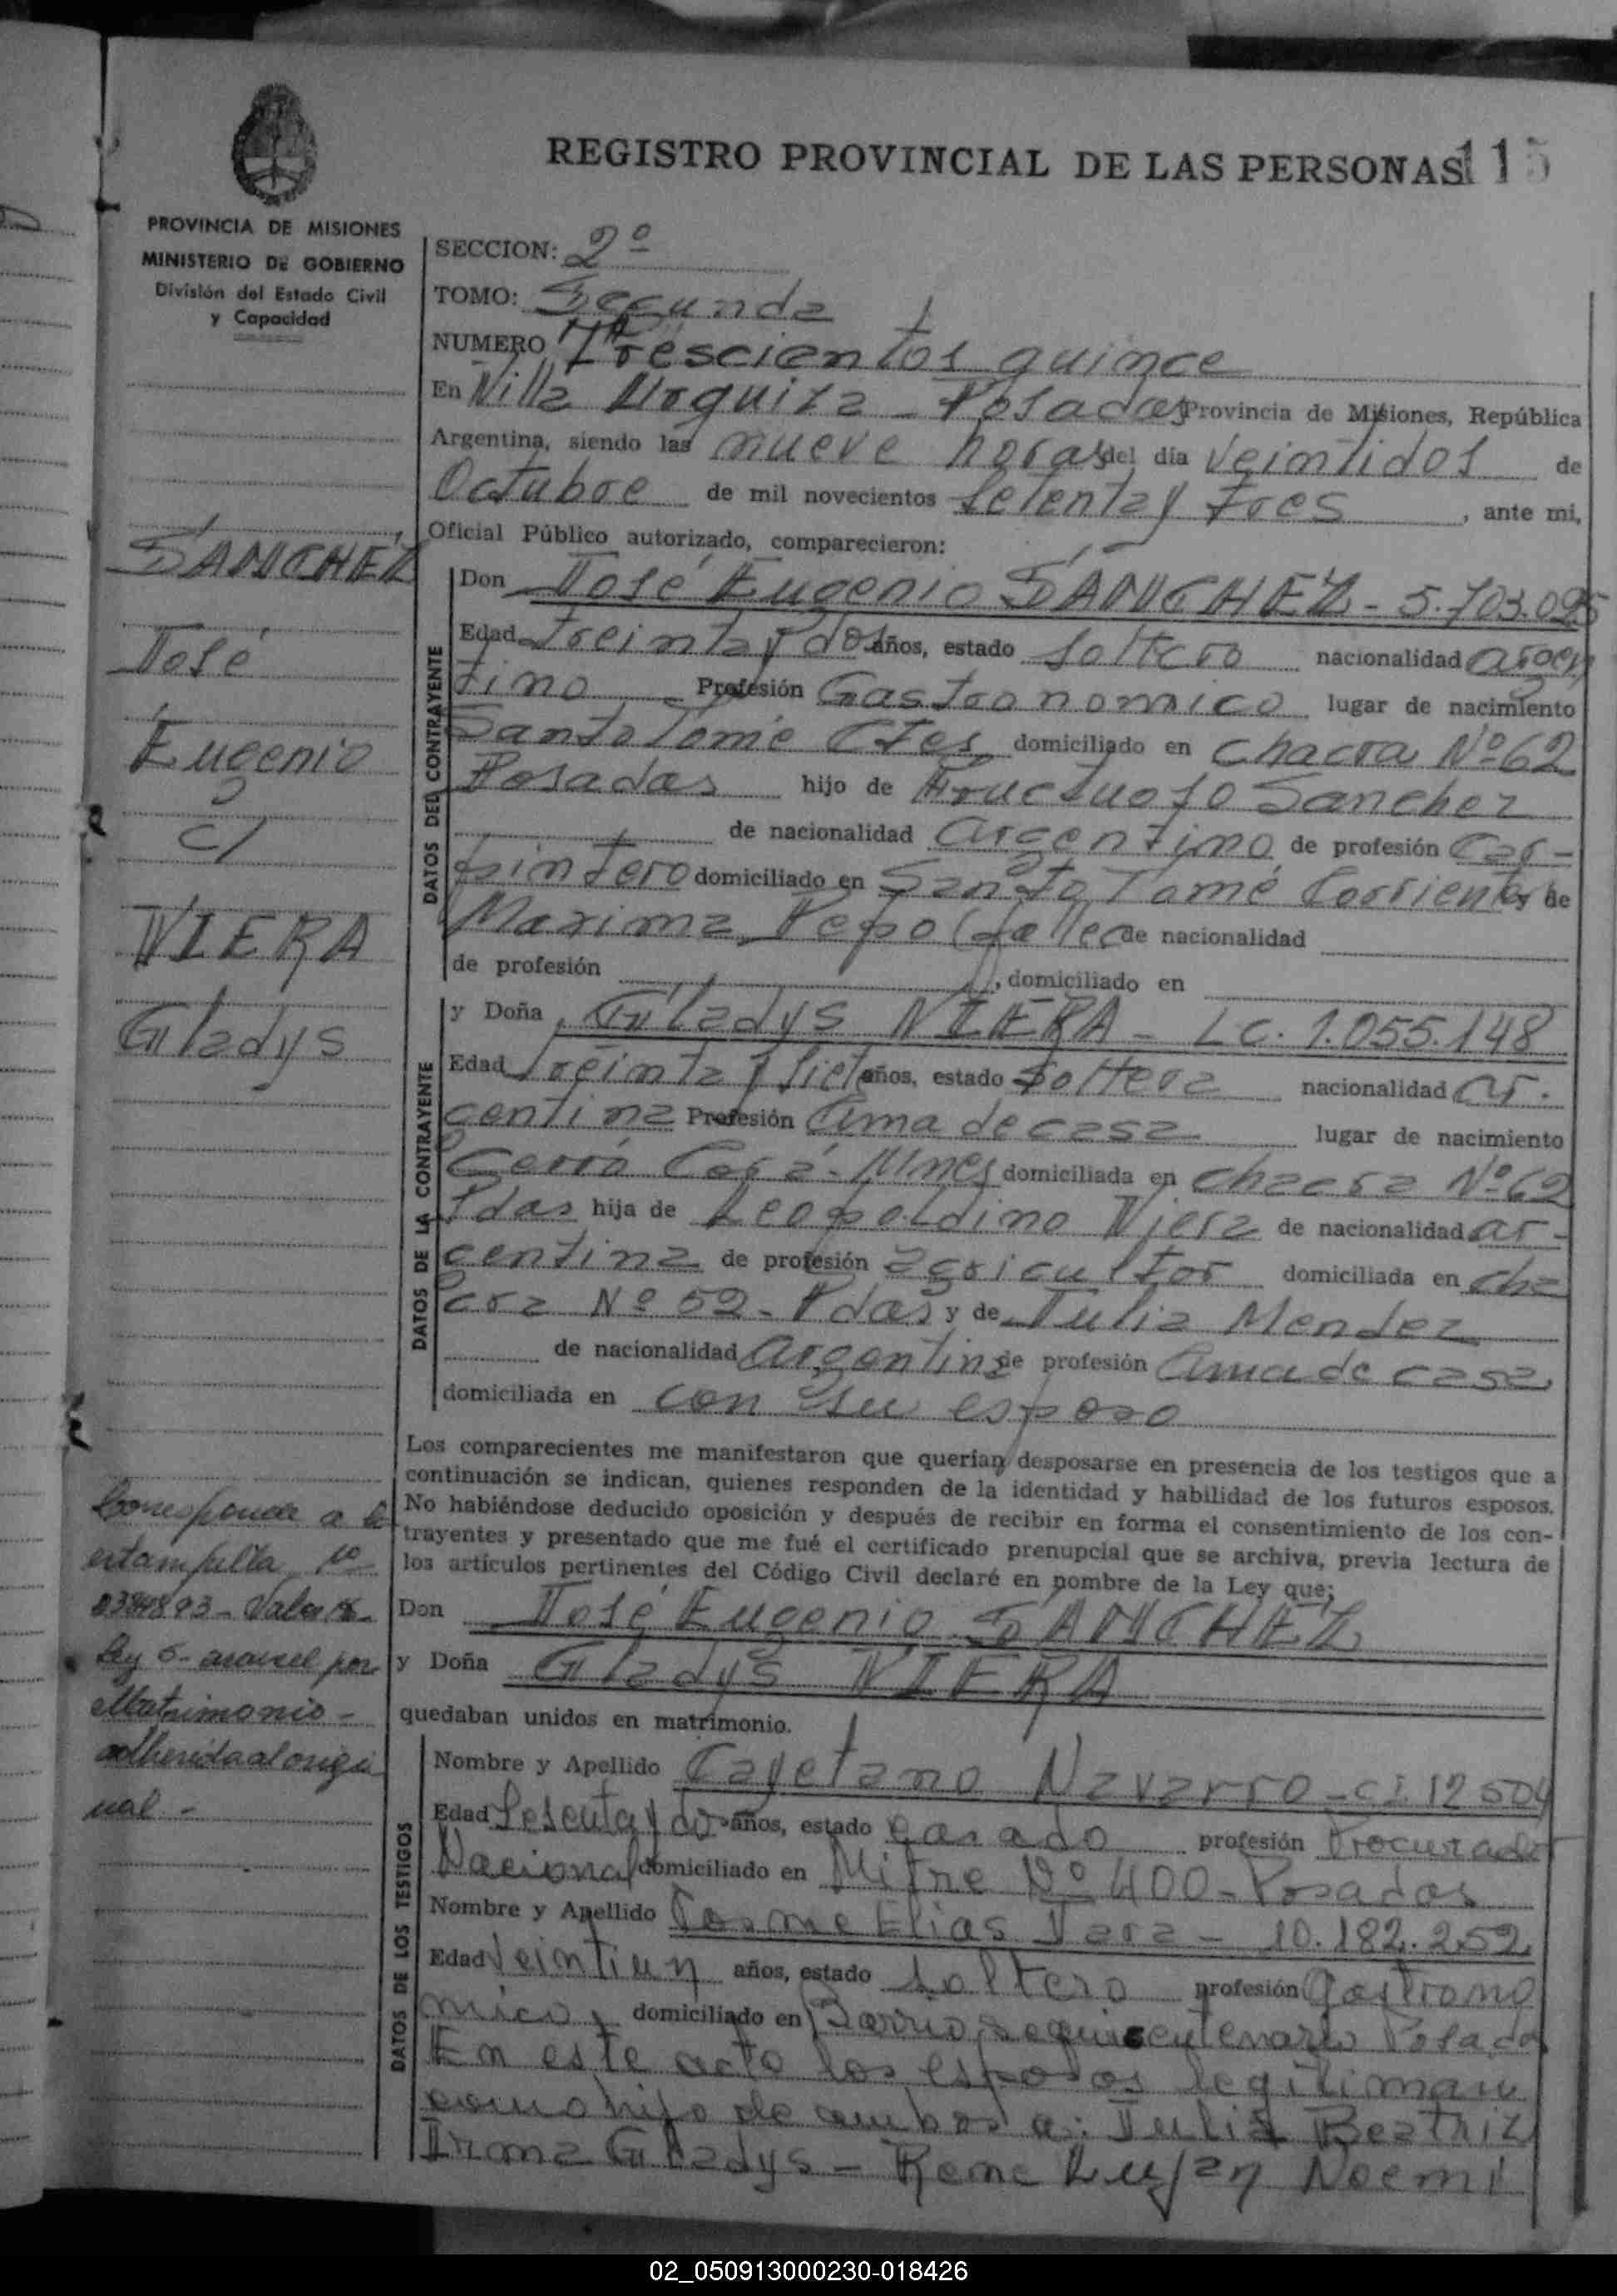 REGISTRO PROVINCIAL DE LAS PERSONAS 115
PROVINCIA DE MISIONES
MINISTERIO DE GOBIERNO
División del Estado Civil
y Capacidad
SECCION: 2º
TOMO: Segunda
NUMERO Trescientos quince
En Villa Urquiza - Posadas Provincia de Misiones, República
Argentina, siendo las nueve horas del día veintidos de
Octubre de mil novecientos setenta y tres, ante mi,
Oficial Público autorizado, comparecieron:
SANCHEZ
José
Eugenio
c/
VIERA
Gladys
DATOS DEL CONTRAYENTE
Don José Eugenio SANCHEZ - 5.703.095
Edad treinta y dos años, estado soltero nacionalidad argen
tino Profesión Gastronomico lugar de nacimiento
Santo Tomé Ctes domiciliado en chacra Nº 62
Posadas hijo de Fructuoso Sanchez
de nacionalidad argentino de profesión car-
pintero domiciliado en Santo Tomé Corrientes y de
Maxima Pepo (falle de nacionalidad
de profesión , domiciliado en
DATOS DE LA CONTRAYENTE
y Doña Gladys VIERA - LC. 1.055.148
Edad treinta y siete años, estado soltera nacionalidad ar.
gentina Profesión Ama de casa lugar de nacimiento
Cerro Corá - Mnes domiciliada en chacra Nº 62
Pdas hija de Leopoldino Viera de nacionalidad ar-
gentina de profesión agricultor domiciliada en cha
cra Nº 59 - Pdas y de Julia Mendez
de nacionalidad argentina de profesión Ama de casa
domiciliada en con su esposo
Los comparecientes me manifestaron que querían desposarse en presencia de los testigos que a
continuación se indican, quienes responden de la identidad y habilidad de los futuros esposos.
No habiéndose deducido oposición y después de recibir en forma el consentimiento de los con-
trayentes y presentado que me fué el certificado prenupcial que se archiva, previa lectura de
los artículos pertinentes del Código Civil declaré en nombre de la Ley que;
Don José Eugenio SANCHEZ
y Doña Gladys VIERA
quedaban unidos en matrimonio.
Corresponde a la
estampilla Nº
Valor
Ley 6- arancel por
Matrimonio -
adherida al origi
nal -
DATOS DE LOS TESTIGOS
Nombre y Apellido Cayetano Navarro - CI 12504
Edad Sesenta y dos años, estado casado profesión Procurador
Nacional domiciliado en Mitre Nº 400 - Posadas
Nombre y Apellido Cosme Elias Jara - 10.182.252
Edad Veintiun años, estado soltero profesión gastrono
mico, domiciliado en Barrio sequicentenario Posadas
En este acto los esposos legitiman
como hijo de ambos a: Julia Beatriz
Irma Gladys - Rene Lujan Noemi
02_050913000230-018426